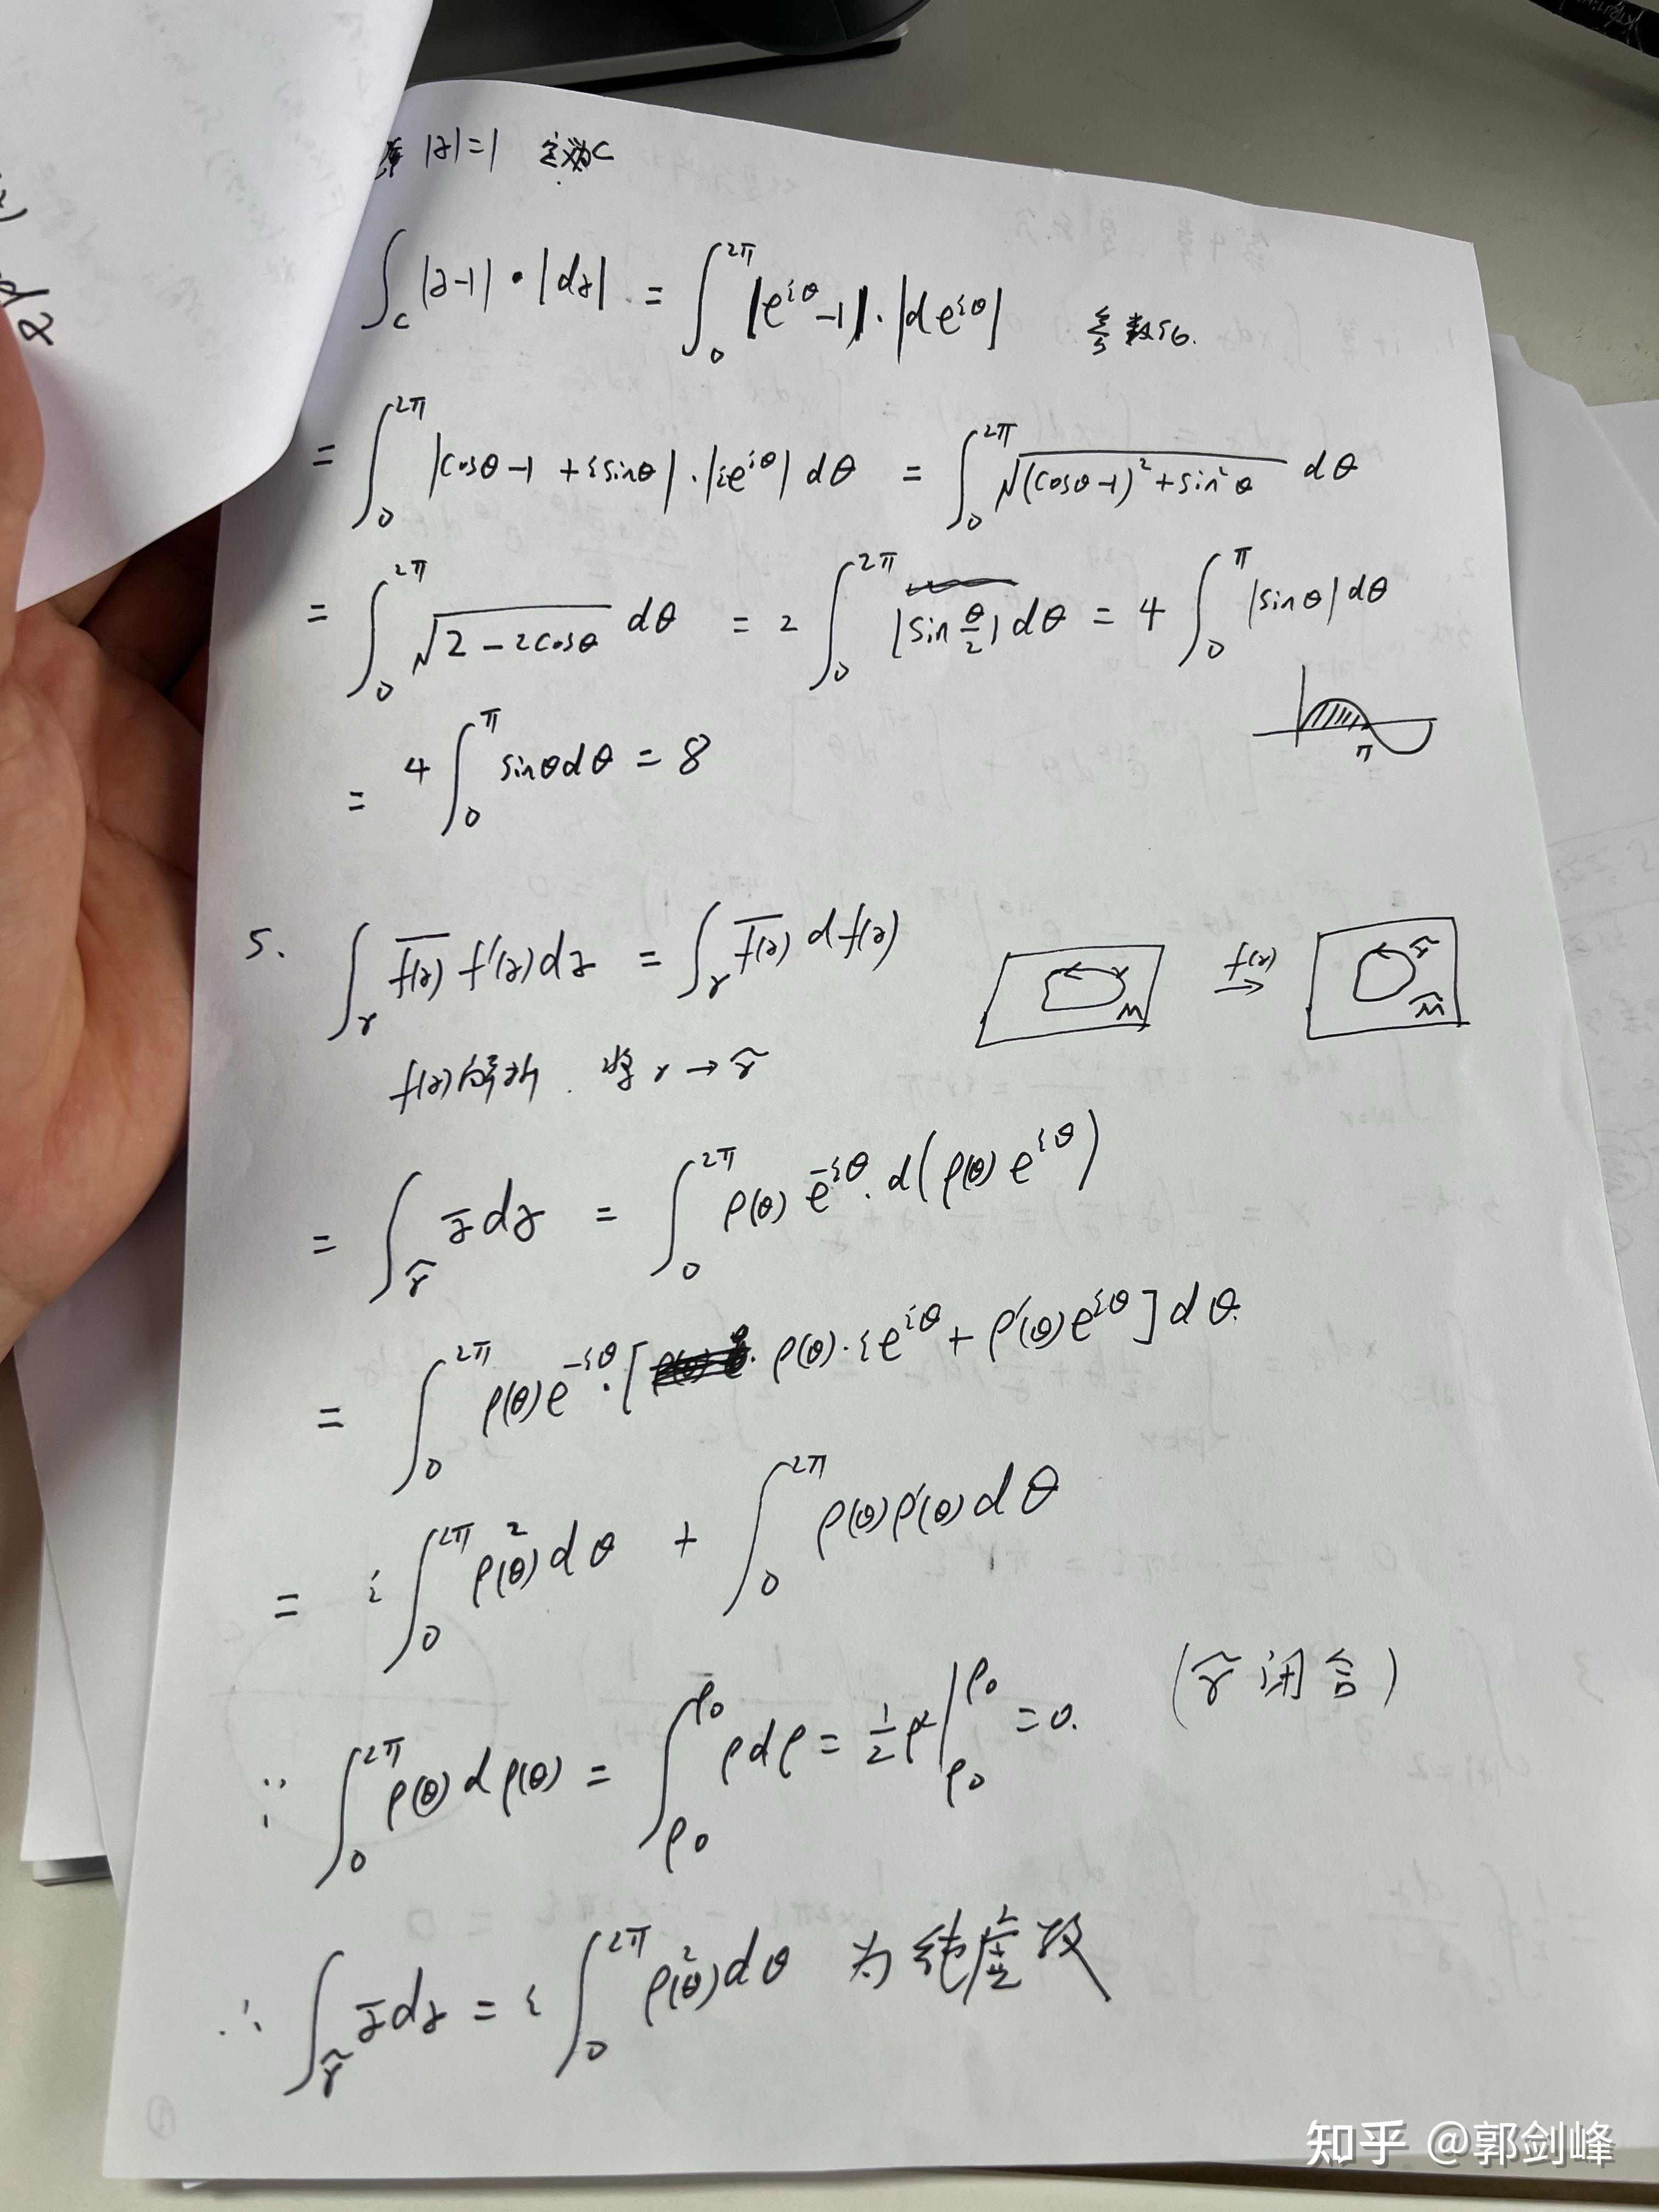 |z|=1 定义为C
∫_C |z-1|·|dz| = ∫_0^{2π} |e^{iθ}-1|·|de^{iθ}| 参数化.
= ∫_0^{2π} |cosθ-1+isinθ|·|ie^{iθ}|dθ = ∫_0^{2π} √((cosθ-1)²+sin²θ) dθ
= ∫_0^{2π} √(2-2cosθ) dθ = 2 ∫_0^{2π} |sin θ/2| dθ = 4 ∫_0^π |sinθ|dθ
π
= 4 ∫_0^π sinθdθ = 8
5. ∫_γ \overline{f(z)} f'(z)dz = ∫_γ \overline{f(z)} df(z) γ M f(z) → γ̃ M̃
f(z)解析. 将γ→γ̃
= ∫_γ̃ z̄dz = ∫_0^{2π} ρ(θ)e^{-iθ}·d(ρ(θ)e^{iθ})
= ∫_0^{2π} ρ(θ)e^{-iθ}·[ρ(θ)·ie^{iθ}+ρ'(θ)e^{iθ}]dθ.
= i∫_0^{2π} ρ²(θ)dθ + ∫_0^{2π} ρ(θ)ρ'(θ)dθ
∵ ∫_0^{2π} ρ(θ)dρ(θ) = ∫_{ρ0}^{ρ0} ρdρ = 1/2 ρ²|_{ρ0}^{ρ0} = 0. (γ̃闭合)
∴ ∫_γ̃ z̄dz = i∫_0^{2π} ρ²(θ)dθ 为纯虚数
知乎 @郭剑峰